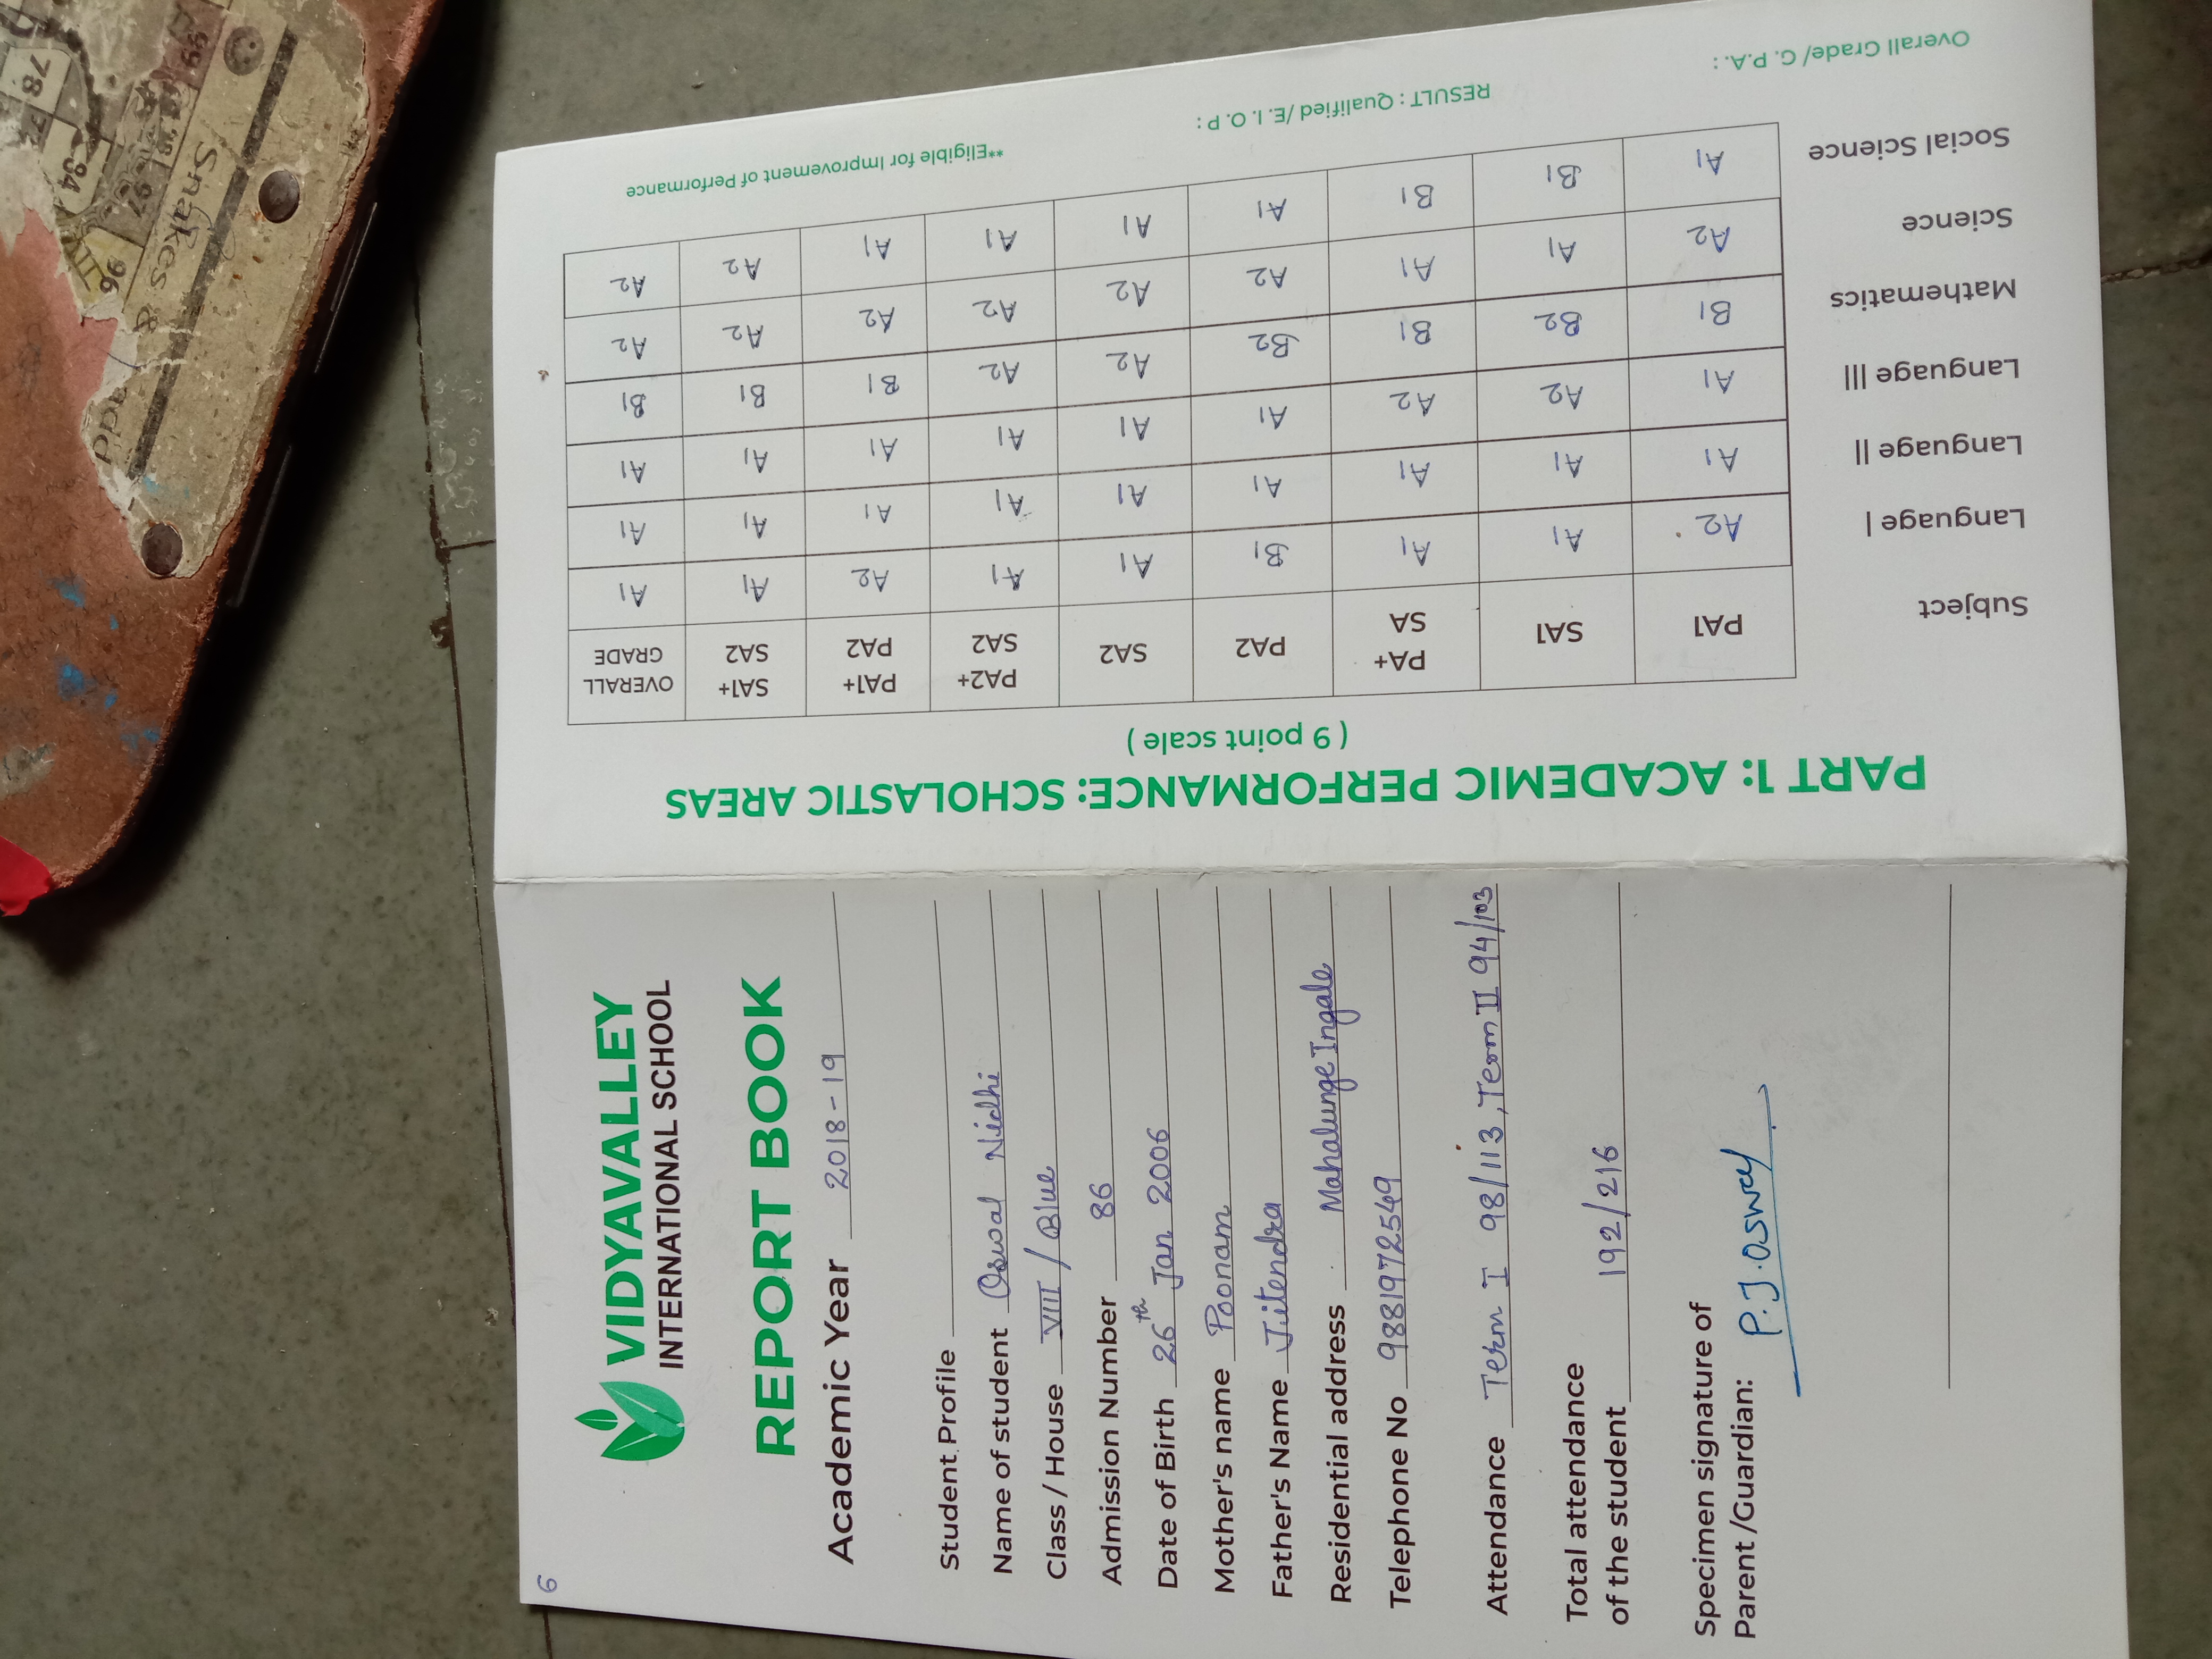 6
VIDYAVALLEY
INTERNATIONAL SCHOOL
REPORT BOOK
Academic Year 2018-19
Student Profile
Name of student Oswal Nidhi
Class / House VIII / Blue
Admission Number 86
Date of Birth 26th Jan 2006
Mother's name Poonam
Father's Name Jitendra
Residential address Mahalunge Ingale
Telephone No 9881972549
Attendance Term I 98/113, Term II 94/103
Total attendance
of the student 192/216
Specimen signature of
Parent /Guardian: P.J. Oswal
PART 1: ACADEMIC PERFORMANCE: SCHOLASTIC AREAS
( 9 point scale )
Subject PA1 SA1 PA+ SA PA2 SA2 PA2+ SA2 PA1+ PA2 SA1+ SA2 OVERALL GRADE
Language | A2 A1 A1 B1 A1 A1 A2 A1 A1
Language || A1 A1 A1 A1 A1 A1 A1 A1 A1
Language ||| A1 A2 A2 A1 A1 A1 A1 A1 A1
Mathematics B1 B2 B1 B2 A2 A2 B1 B1 B1
Science A2 A1 A1 A2 A2 A2 A2 A2 A2
Social Science A1 B1 B1 A1 A1 A1 A1 A2 A2
RESULT : Qualified /E. I. O. P :
**Eligible for Improvement of Performance
Overall Grade/ G. P.A. :
Snakes &
99
78
84
97
96